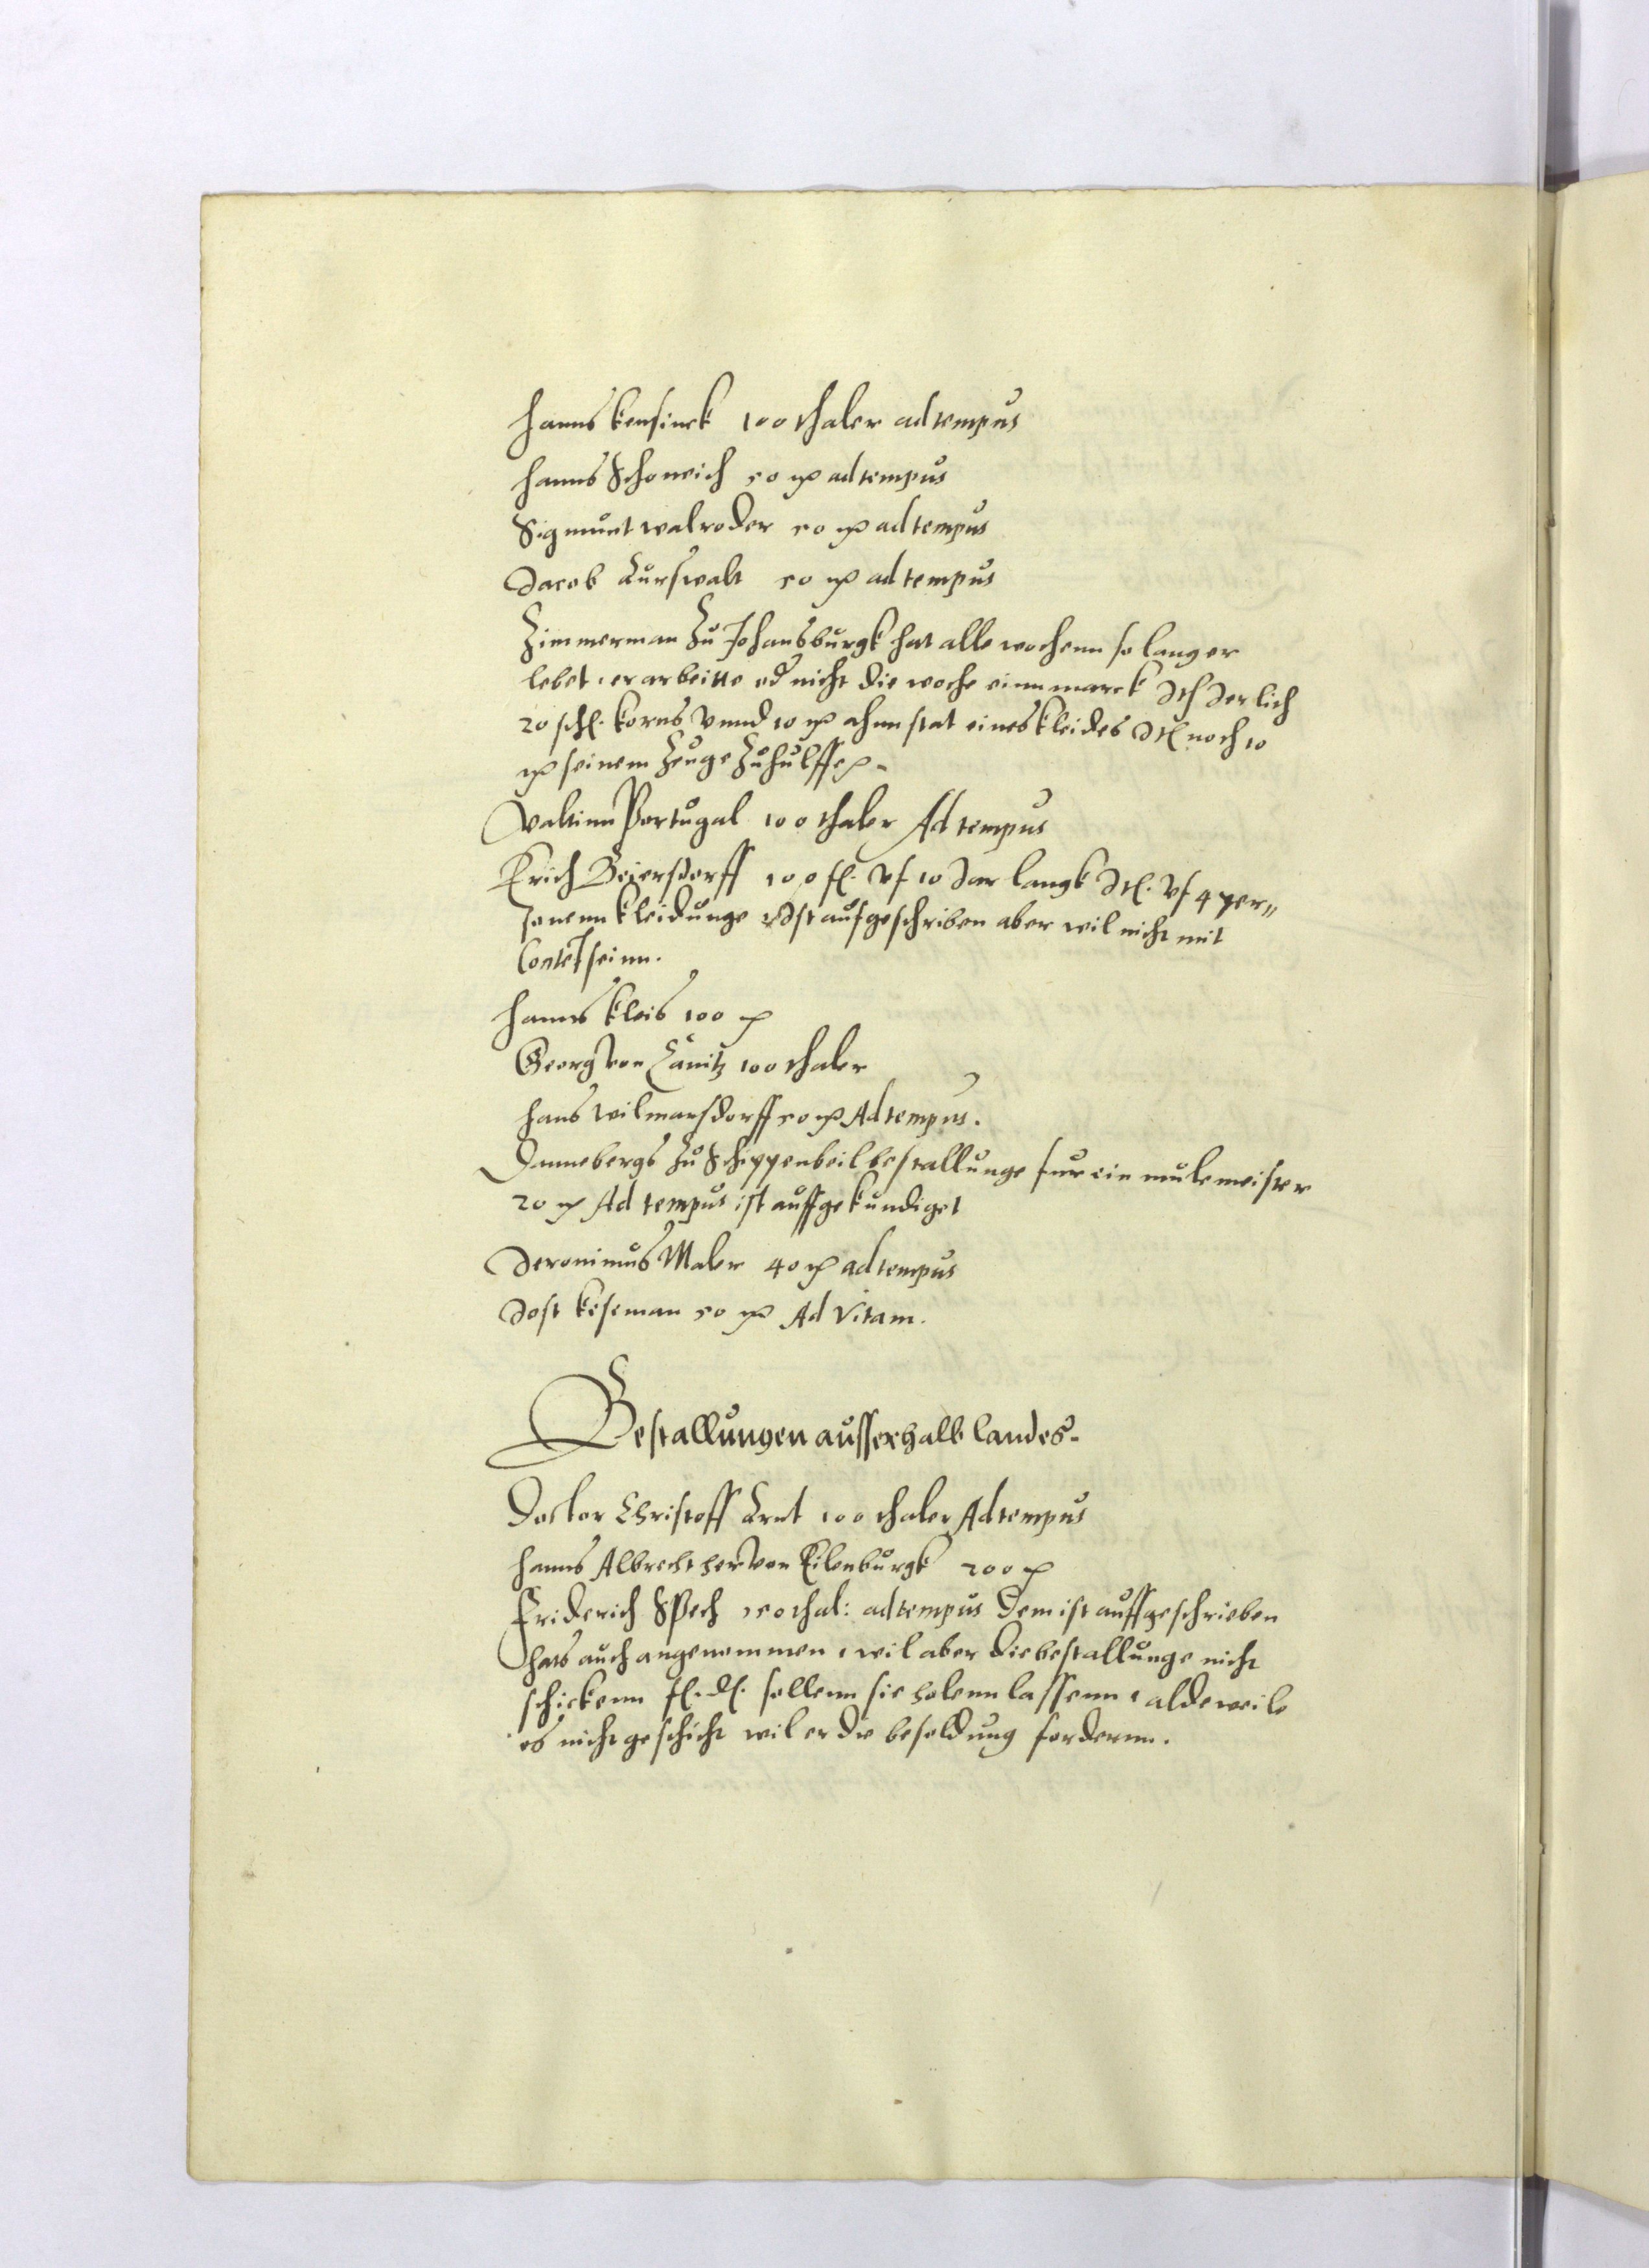 Hanns Kensinck 100 thaler ad tempus
Hanns Schoneich 50 mr ad tempus
Sigmunt walroder 50 mr ad tempus
Jacob Kurswalt 50 mr ad tempus
Zimmerman zu Johansburgk hat alle wochenn so lang er
lebet, er arbeitte od nicht die woche einn marck Itl Jerlich
20 schl. korns vnnd 10 mr ahnn stat eines kleides Itl noch 10
mr seinem Zeuge zuhulff
Valtinn Portugal 100 thaler Ad tempus
Erich Beiersdorff 100 fl. vf 10 Jar langk Itl. vf 4 per„
sonenn kleidunge Ist aufgeschriben aber wil nicht mit
Contet seinn.
Hanns kleis 100 mr
Georg von Canitz 100 thaler
Hans wilmarsdorff 50 mr Ad tempus.
Dannebergs zu Schippenbeil bestallunge fur ein mulemeister
20 mr Ad tempus ist auffgekundiget
Jeronimus Maler 40 mr ad tempus
Jost keseman 50 mr Ad vitam.
Bestallungen ausserhalb landes.
Doctor Christoff 100 thaler Ad tempus
Hanns Albrecht her von Eilenburgk 200 mr
Friderich Spech 150 thal: ad tempus Dem ist auffgeschrieben
hats auch angenommen, wil aber die bestallunge nicht
schickenn fl. dl. sollenn sie holenn lassenn, aldeweile
es nicht geschicht wil er die besoldung fordernn.